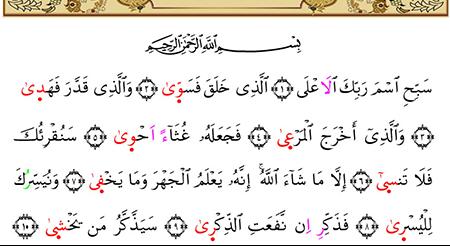 بِسْمِ اللَّهِ الرَّحْمَٰنِ الرَّحِيمِ
سَبِّحِ اسْمَ رَبِّكَ الَاعْلَى ﴿١﴾ الَّذِي خَلَقَ فَسَوّٜىٰ ﴿٢﴾ وَالَّذِي قَدَّرَ فَهَدٜىٰ
﴿٣﴾ وَالَّذِيٓ أَخْرَجَ الْمَرْعٜىٰ ﴿٤﴾ فَجَعَلَهُۥ غُثَآءً اَحْوٜىٰ ﴿٥﴾ سَنُقْرِئُكَ
فَلَا تَنسٜىٰٓ ﴿٦﴾ إِلَّا مَا شَآءَ اللَّهُ ۚ إِنَّهُۥ يَعْلَمُ الْجَهْرَ وَمَا يَخْفٜىٰ ﴿٧﴾ وَنُيَسِّرُكَ
لِلْيُسْرٜىٰ ﴿٨﴾ فَذَكِّرِ اِن نَّفَعَتِ الذِّكْرٜىٰ ﴿٩﴾ سَيَذَّكَّرُ مَن يَخْشٜىٰ ﴿١٠﴾